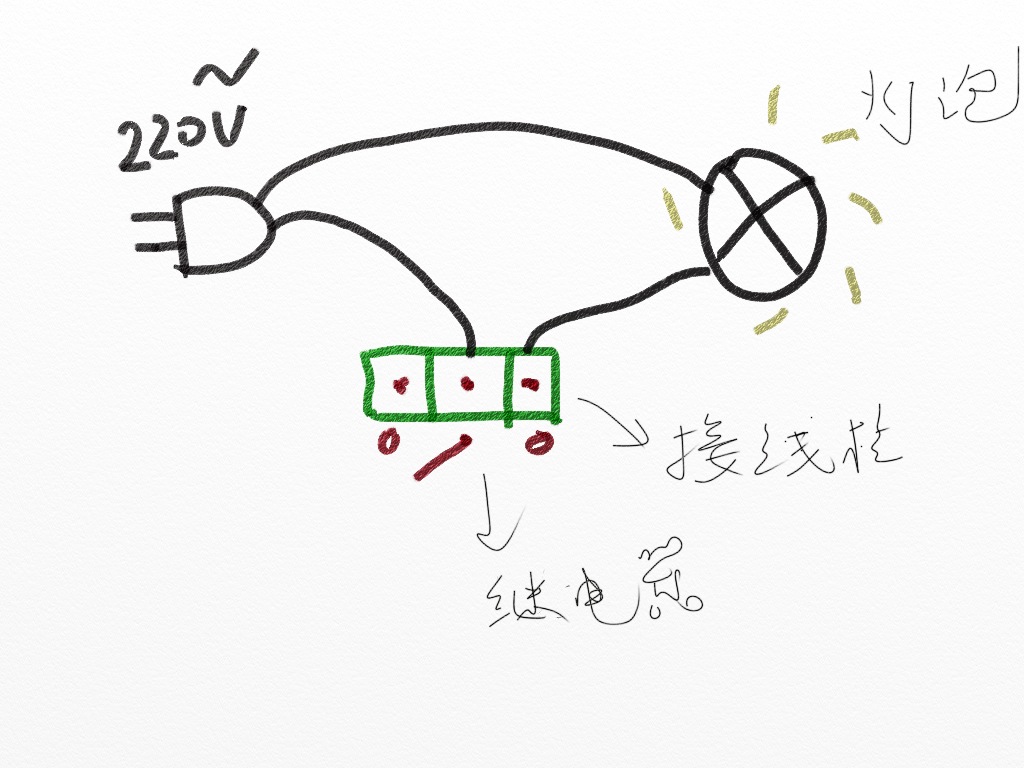 ~
220V
灯泡
接线柱
继电器